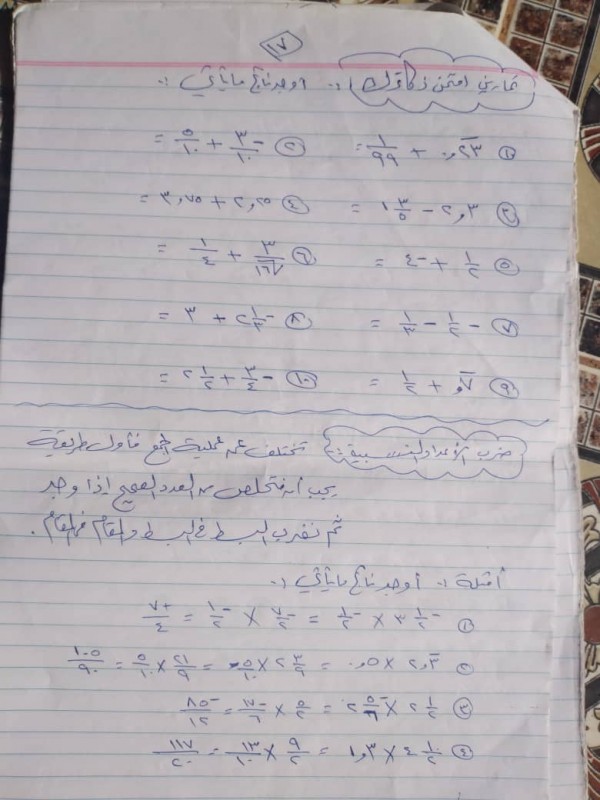 ١٧
تمارين امتحن ذكاؤك :. أوجد ناتج مايأتي :.
① ٠,٢٣ + ١/٩٩ =
② -٣/١٠ + ٥/١٠ =
③ ٢,٣ - ١ ٣/٥ =
④ ٢,٢٥ + ٣,٧٥ =
⑤ ١/٢ + -٤ =
⑥ ٣/√١٦ + ١/٤ =
⑦ -١/٢ - ١/٣ =
⑧ -٢ ١/٣ + ٣ =
⑨ ٠,٧ + ١/٢ =
⑩ -٣/٤ + ٢ ١/٢ =
ضرب الأعداد النسبية :. تختلف عن عملية الجمع فأول طريقة
يجب أن نتخلص من العدد الصحيح إذا وجد
ثم نضرب البسط في البسط والمقام في المقام .
أمثلة :. أوجد ناتج مايأتي :.
① -٣ ١/٢ × -١/٢ = -٧/٢ × -١/٢ = +٧/٤
② ٢,٣ × ٠,٥ = ٢ ٣/٩ × ٥/١٠ = ٢١/٩ × ٥/١٠ = ١٠٥/٩٠
③ ٢ ١/٢ × -٢ ٥/٦ = ٥/٢ × -١٧/٦ = -٨٥/١٢
④ ٤ ١/٢ × ١,٣ = ٩/٢ × ١٣/١٠ = ١١٧/٢٠